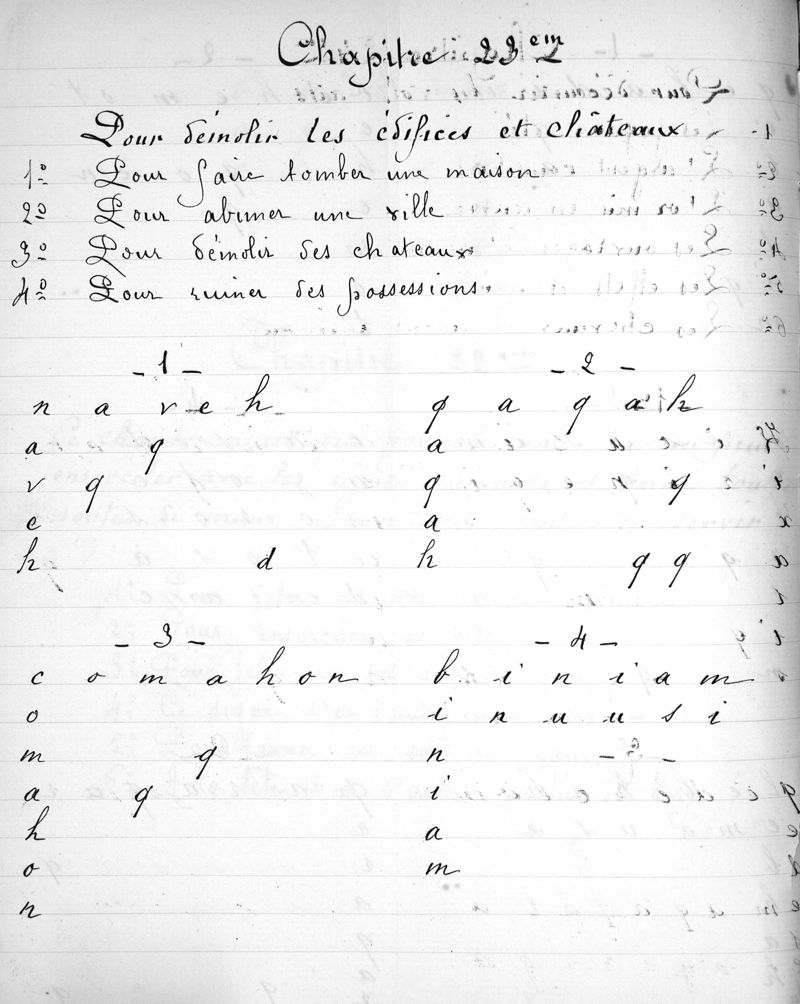 Chapitre 23em
Pour démolir les édifices et châteaux
1º Pour faire tomber une maison
2º Pour abimer une ville
3º Pour démolir des chateaux
4º Pour ruiner des possessions.
- 1 -
n a v e h
a q
v q
e
h d
- 2 -
q a q a h
a
q q
a
h q q
- 3 -
c o m a h o n
o
m q
a q
h
o
n
- 4 -
b i n i a m
i n u u s i
n
i
a
m